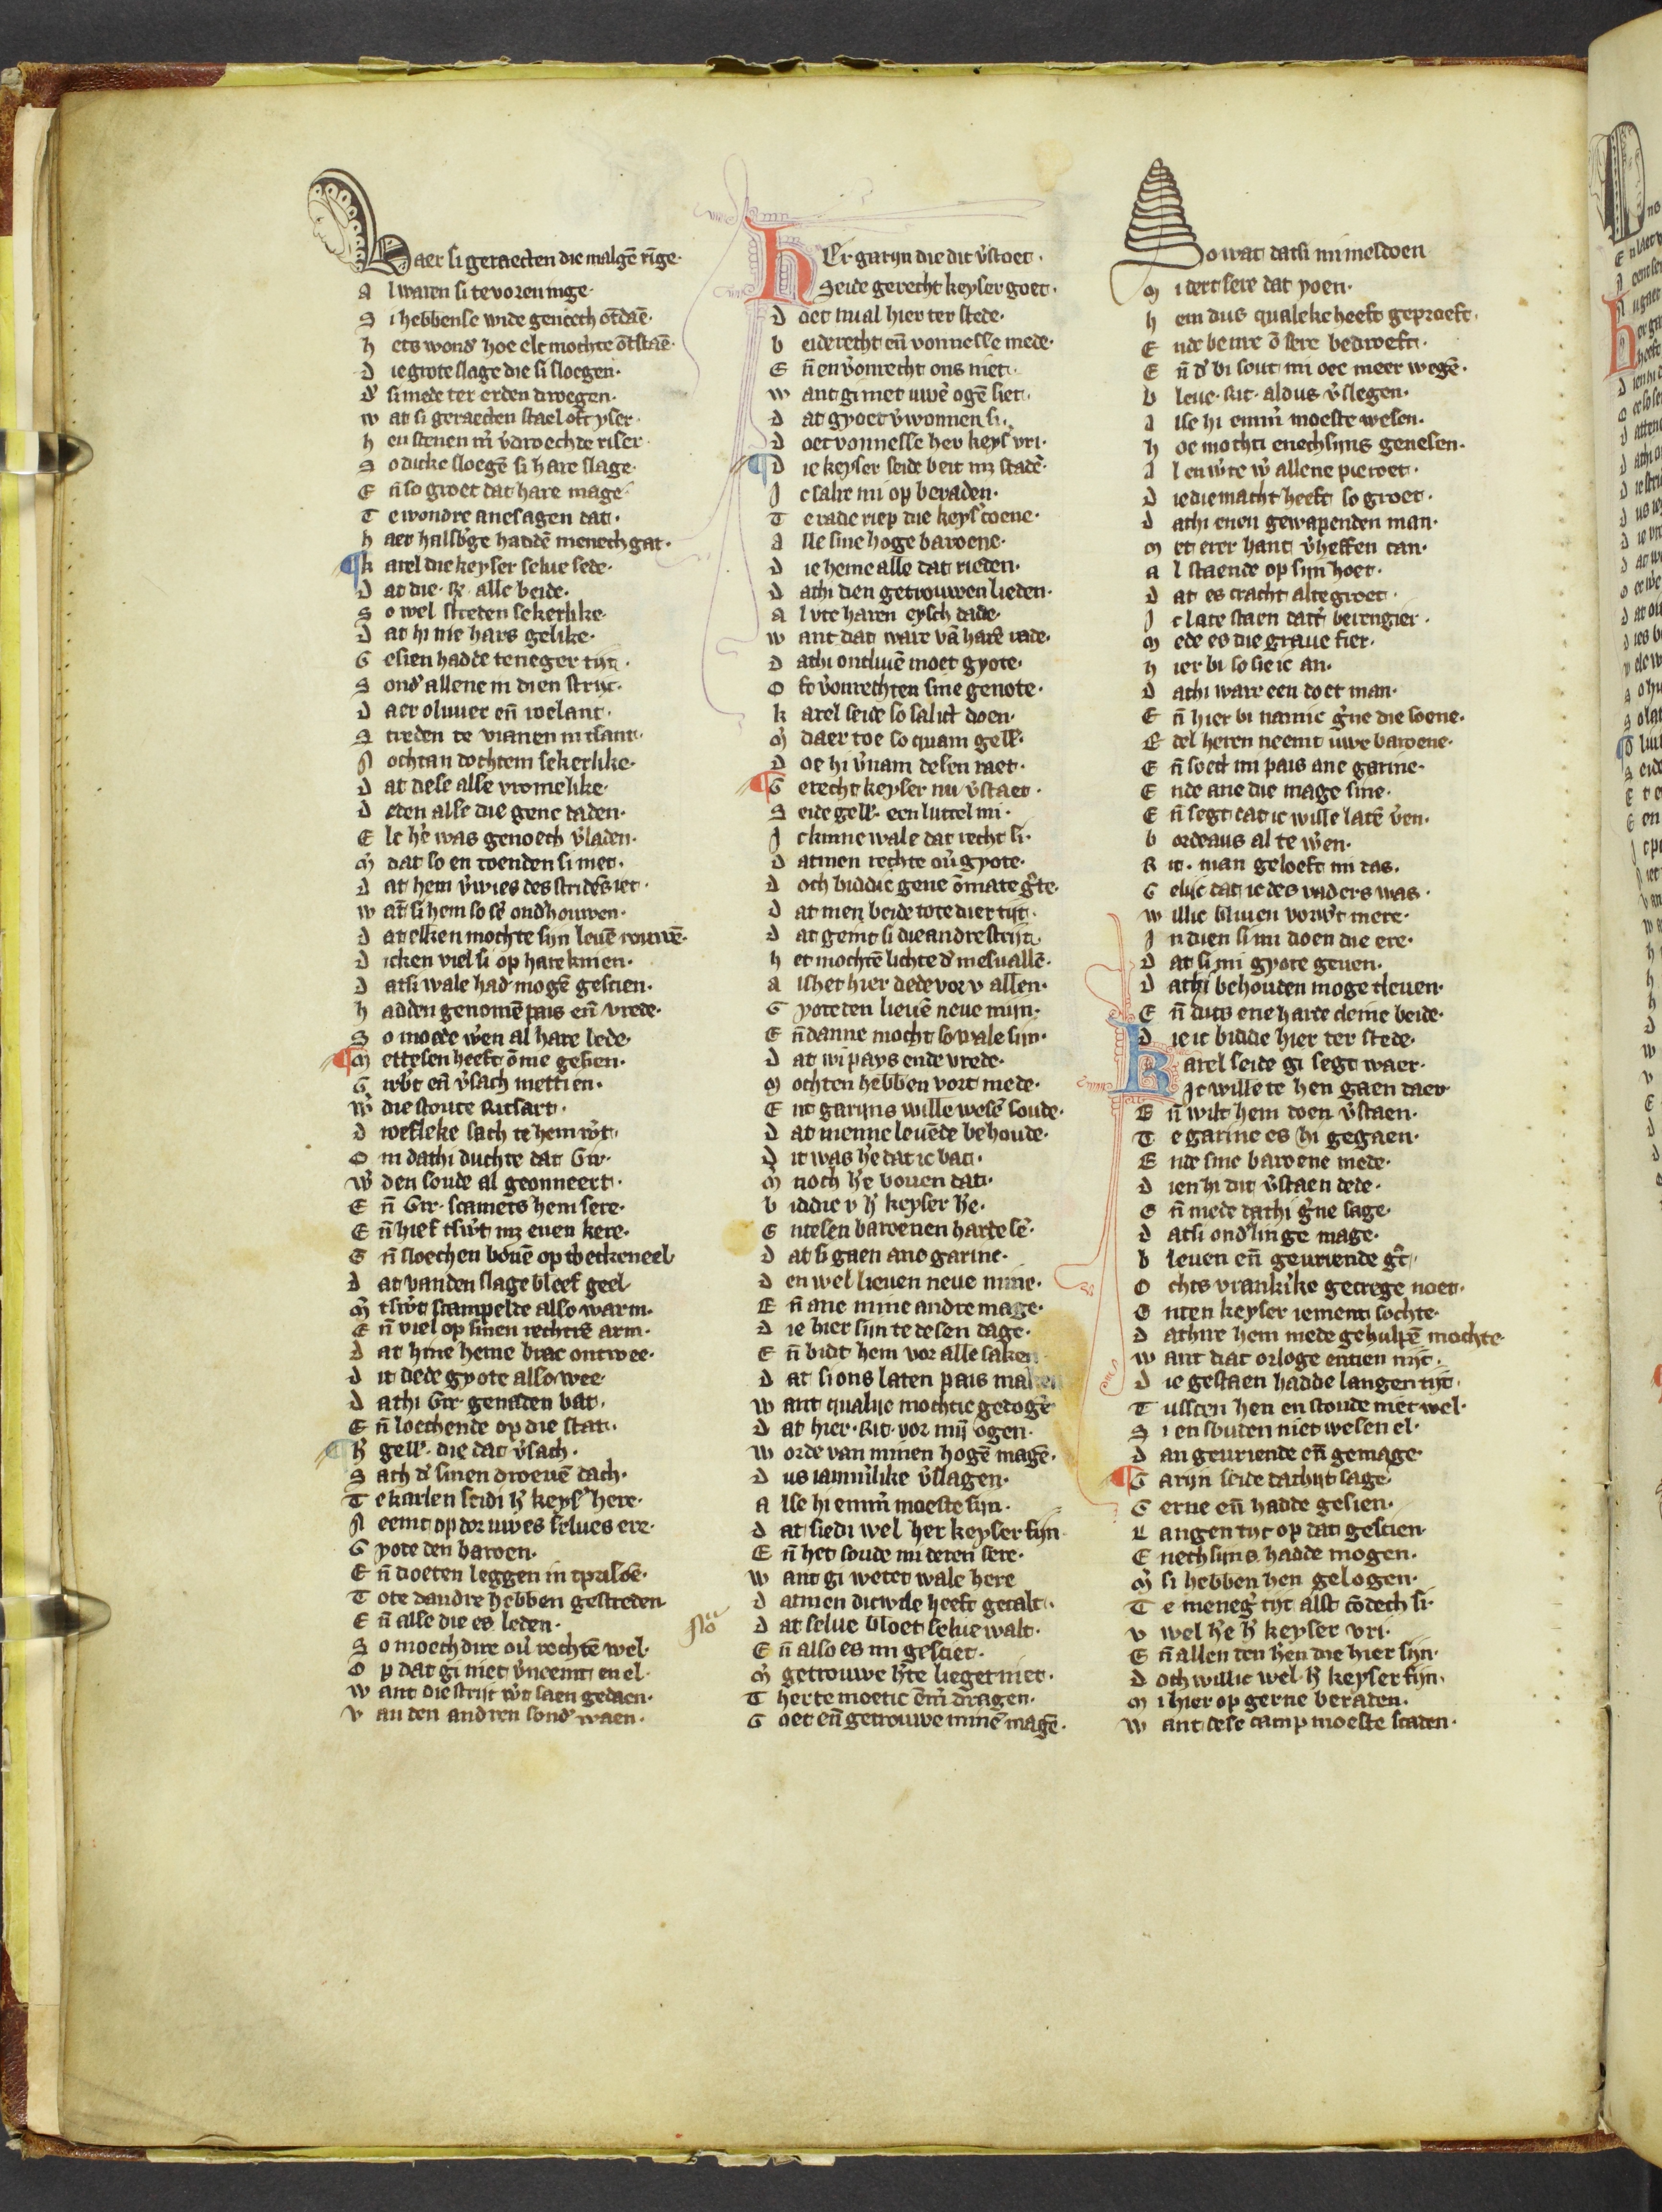 Daer si geraecten die malgē rīge·
Al waren si te voren inge·
Si hebbense wide genoech ōtdaē·
Hets wond' hoe elc mochte ōtstaē·
Die grote slage die si sloegen·
D' si mede ter erden droegen·
Wat si geraecten stael oft yser·
Hen stenen
So dicke sloegē si hare slage·
Eñ so groet dat hare mage
Te wondre ane sagen dat·
Haer halsb'ge haddē menech gat·
Karel die keyser selue sede·
Dat die alle beide·
So wel streden sekerlike·
Dat hi nie hars gelike·
Gesien hadde teneger tijt·
Sond' allene in dien strijt·
Daer oliuier eñ roelant·
Streden te vianen int sant·
Nochtan dochtem sekerlike·
Dat dese alse vromelike·
Deden alse die gene daden·
Elc h'e was genoech v'laden·
M' dat so en roenden si niet·
Dat hem v'wies des strides iet·
Wat si hem so se' ond'houwen·
Dat elken mochte sijn leuē rouwē·
Dicken viel si op hare knien·
Datsi wale had mogē gescien·
Hadden genomē pais eñ vrede·
So moede w'en al hare lede·
Mettesen heeft ōme gesien·
G eñ v'sach mettien·
W' die stoute Ritsart·
Droefleke sach te hem w't·
Om dathi duchte dat Gir·
W' den soude al geonneert·
Eñ Gir· scamets hem sere·
Eñ hief tsw't mz enen kere·
Eñ sloechen bouē op tbeckeneel
Dat vanden slage bleef geel·
M' tsw't scampelde also warm·
Eñ viel op sinen rechtrē arm·
Dat hine heme brac ontwee·
Dit dede gyote also wee·
Dathi Gir· genaden bat·
Eñ loechende op die stat·
H' gell'· die dat v'sach·
Sach d' sinen droeuē dach·
Te karlen seidi h' keys' here·
Neemt op dor uwes selues ere·
Gyote den baroen·
Eñ doeten leggen in tprisoē·
Tote dandre hebben gestreden
Eñ alse die es leden·
So moechdire ou' rechtē wel·
Op dat gi niet v'neemt en el·
Want die strijt w't saen gedaen·
Van den andren sond' waen·
Her garijn die dit v'stoet·
Seide gerecht keyser goet·
Doet nu al hier ter stede·
Beide recht eñ vonnesse mede·
Eñ en v'onrecht ons niet·
Want gi met uwē ogē siet·
Dat gyoet v'wonnen si·
Doet vonnesse her keys' vri·
Die keyser seide beit mz stadē·
Ic salre mi op beraden·
Te rade riep die keys' coene·
Alle sine hoge baroene·
Die heme alle dat rieden·
Dathi dien getrouwen lieden·
Al vte haren eysch dade·
Want dat ware vā harē rade·
Dathi ontliuē moet gyote·
Oft v'onrechten sine genote·
Karel seide so salict doen·
M' daer toe so quam gell'·
Doe hi v'nam desen raet·
Gerecht keyser nu v'staet·
Seide gell'· een luttel mi·
Ic kinne wale dat recht si·
Datmen rechte ou' gyote·
Doch biddic gene ōmate g'te·
Dat men beide tote dier tijt·
Dat geint si die andre strijt·
Het mochtē lichte d' mesuallē·
Alshet hier dede vor v allen·
Gyote den lieuē neue mijn·
Eñ danne mocht so wale sijn·
Dat wi pays ende vrede·
Mochten hebben vort mede·
Ent garijns wille wesē soude·
Dat menne leuēde behoude·
Dit was h'e dat ic bat·
M' noch h'e bouen dat·
Biddic v h' keyser h'e·
Entesen baroenen harde se'·
Dat si gaen ane garine·
Den wel lieuen neue mine·
Eñ ane mine andre mage·
Die hier sijn te desen dage·
Eñ bidt hem vor alle saken
Dat si ons laten pais maken
Want qualijc mochtic gedogē
Dat hier· Rit· vor mijn ogen·
Worde van minen hogē magē·
Dus iam'like v'slagen·
Alse hi emm' moeste sijn·
Dat siedi wel her keyser fijn·
Eñ het soude mi deren sere·
Want gi wetet wale here
Datmen dicwile heeft getalt·
Dat selue bloet selue walt·
Eñ also es mi gesciet·
M' getrouwe h'te lieget niet·
Therte moetic ēm' dragen·
Goet eñ getrouwe minē magē·
So wat datsi mi mesdoen
Mi dert sere dat poen·
Hem dus qualeke heeft geproeft·
Ende benre ō sere bedroeft·
Eñ d' bi sout mi oec meer wegē·
Bleue· Rit· aldus v'slegen·
Alse hi emm' moeste wesen·
Hoe mochti enechsijns genesen·
Al en w'te w' allene pieroet·
Die die macht heeft so groet·
Dathi enen gewapenden man·
Met erer hant v'heffen can·
Al staende op sijn hoet·
Dat es cracht alte groet·
Ic late staen datt' berengier·
Mede es die graue fier·
Hier bi so sie ic an·
Dathi ware een doet man·
Eñ hier bi namic g'ne die soene·
Edel heren neemt uwe baroene·
Eñ soect mi pais ane garine·
Ende ane die mage sine·
Eñ segt dat ic wille latē v'en·
Bordeaus al te w'en·
Rit· man geloeft mi das·
Gelijc dat ic des vaders was·
Willic bliuen vorw't mere·
In dien si mi doen die ere·
Dat si mi gyote geuen·
Dathi behouden moge tleuen·
Eñ duts ene harde cleine bede·
Die ic bidde hier ter stede·
Karel seide gi segt waer·
Ic wille te hen gaen daer
Eñ wilt hem doen v'staen·
Te garine es hi gegaen·
Ende sine baroene mede·
Dien hi dit v'staen dede·
Eñ mede dathi g'ne sage·
Datsi ond'linge mage·
Bleuen eñ geuriende g't·
Ochts vrankrike gecrege noet·
Enten keyser iement sochte·
Dathire hem mede gehulpē mochte·
Want dat orloge entien nijt·
Die gestaen hadde langen tijt·
Tusscen hen en stoude niet wel·
Si en souden niet wesen el·
Dan geuriende eñ gemage·
Garijn seide dathijt sage
Gerne eñ hadde gesien·
Langen tijt op dat gescien·
Enechsijns hadde mogen·
M' si hebben hen gelogen·
Te meneg' tijt alst cōdech si·
V wel h'e h' keyser vri·
Eñ allen den h'en die hier sijn·
Doch willic wel h' keyser fijn·
Mi hier op gerne beraden·
Want dese camp moeste scaden·